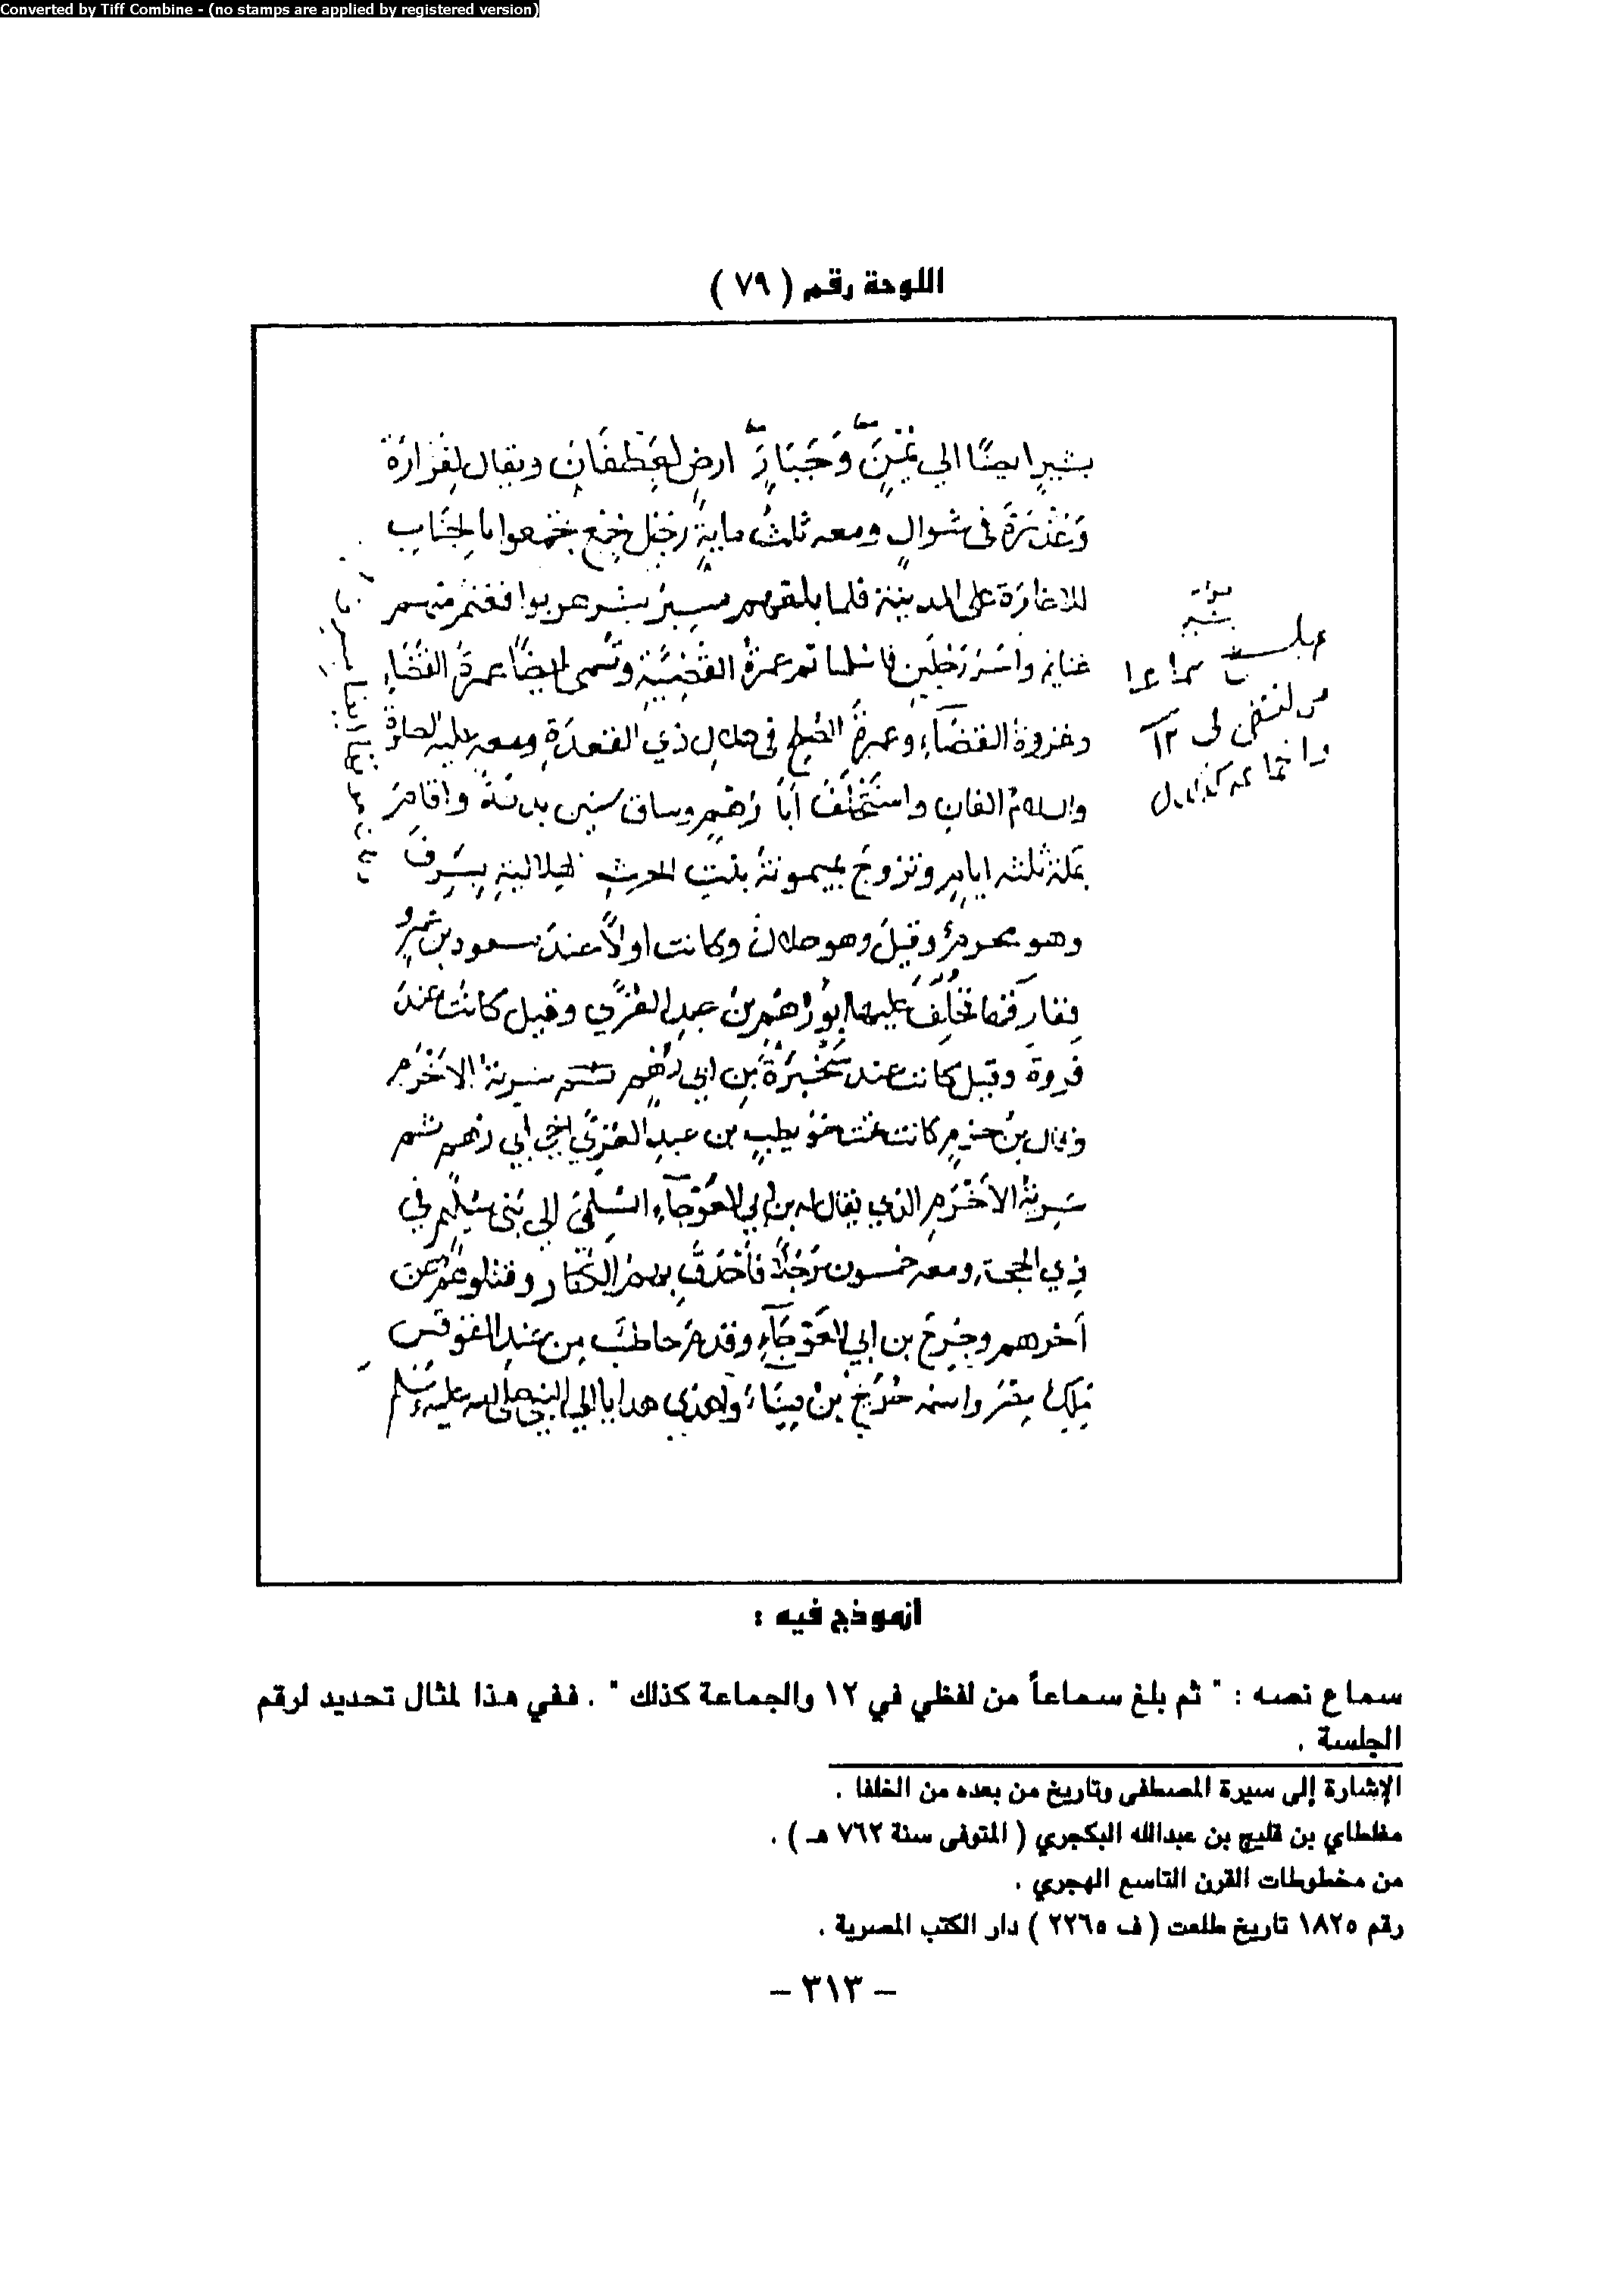 Converted by Tiff Combine - (no stamps are applied by registered version)
اللوحة رقم ( ٧٩ )
بشيرٍ ايضًا الي يَمْنٍ وَجَبَارٍ ارضٍ لغَطَفَانَ ويقال لفَزارَة
وَعُذْرَةَ في شوالٍ ومعه ثلثُ مايةِ رَجُلٍ لجمْعٍ تجمعوا بالجِنَابِ
للاغارَة على المدينة فلما بلغهم مسيرُ بشير هربوا فغنم منهم
غنايم واسَرَ رَجُلَينِ فاسْلما ثم عمرةُ القَضِيَّة وتُسمى ايضًا عمرةُ القَضَاءِ
وغزوةُ القضَاءِ وعمرةُ الصُلح في هلالِ ذي القَعدَةِ ومعه عليه الصلوةُ
والسلامُ الفانِ واستَخْلَفَ أبَا رُهْمٍ وساق ستين بدنةً واقامَ
بمكة ثلثه ايامٍ وتزوجَ بميمونةَ بنت الحرثِ الهلاليةِ بِسَرِفَ
وهو محرمٌ وقيلَ وهو حلالٌ وكانت اولًا عندَ مسعود بن عَمْرٍو
ففارقَها فخَلَفَ عليها ابُو رُهْمِ بنُ عبدِ العُزَّي وقيل كانت عندَ
فروةَ وقيل كانت عند سَخْبَرَةَ بن ابي رُهْمٍ ثم سَرِيةُ الاخْرَمِ
وقال بنُ حزمٍ كانت تحت حُوَيطِبِ بن عبدِ العُزَّي اخي ابي رُهم ثم
سَرِيةُ الاَخْرَمِ الذي يقال له بن ابي العَوْجَآءِ السُلَمِيُّ الي بَنِي سُلَيْمٍ في
ذي الحجة ومعه خمسون رَجُلًا فأحْدَقَ بهم الكُفَّار وقتلوهُمْ عن
آخرهم وجُرِحَ بن ابي العَوْجَآءِ وقدم حاطبٌ من عندِ المقوقس
مَلِكِ مِصْرَ واسمُه جُرَيْجُ بنُ مِينَاءَ وأهدَي هدايا الي النبي صلى الله عليه وَسَلم
بشير
بلغ سماعا
من لفظي في ١٢
والجماعه كذلك
أنموذج فيه :
سماع نصه : " ثم بلغ سماعاً من لفظي في ١٢ والجماعة كذلك " . ففي هذا لمثال تحديد لرقم
الجلسة .
الإشارة إلى سيرة المصطفى وتاريخ من بعده من الخلفا .
مغلطاي بن قليج بن عبدالله البكجري ( المتوفى سنة ٧٦٢ هـ ) .
من مخطوطات القرن التاسع الهجري .
رقم ١٨٢٥ تاريخ طلعت ( ف ٢٢٦٥ ) دار الكتب المصرية .
– ٣١٣ –